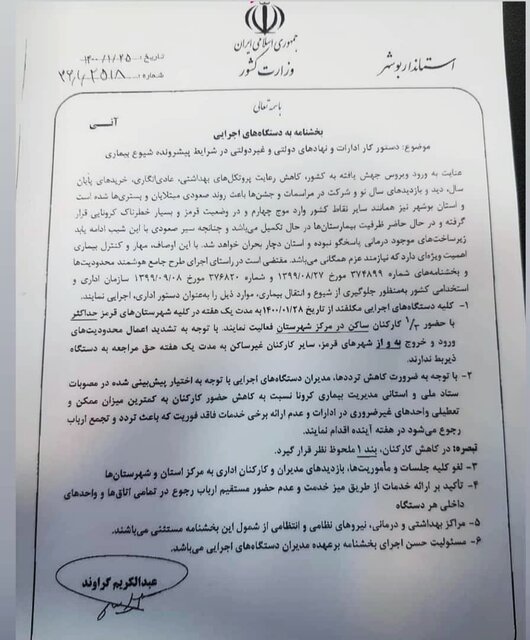 جمهوری اسلامی ایران
وزارت کشور
استاندار بوشهر
تاریخ: ۱۴۰۰/۱/۲۵
شماره:
باسمه تعالی
آنی
بخشنامه به دستگاه‌های اجرایی
موضوع: دستور کار ادارات و نهادهای دولتی و غیردولتی در شرایط پیشرونده شیوع بیماری
عنایت به ورود ویروس جهش یافته به کشور، کاهش رعایت پروتکل‌های بهداشتی، عادی‌انگاری، خریدهای پایان
سال، دید و بازدیدهای سال نو و شرکت در مراسمات و جشن‌ها باعث روند صعودی مبتلایان و بستری‌ها شده است
و استان بوشهر نیز همانند سایر نقاط کشور وارد موج چهارم و در وضعیت قرمز و بسیار خطرناک کرونایی قرار
گرفته و در حال حاضر ظرفیت بیمارستان‌ها در حال تکمیل می‌باشد و چنانچه سیر صعودی با این شیب ادامه یابد
زیرساخت‌های موجود درمانی پاسخگو نبوده و استان دچار بحران خواهد شد. با این اوصاف، مهار و کنترل بیماری
اهمیت ویژه‌ای دارد که نیازمند عزم همگانی می‌باشد. مقتضی است در راستای اجرای طرح جامع هوشمند محدودیت‌ها
و بخشنامه‌های شماره ۳۷۴۸۹۹ مورخ ۱۳۹۹/۰۸/۲۷ و شماره ۳۷۶۸۲۰ مورخ ۱۳۹۹/۰۹/۰۸ سازمان اداری و
استخدامی کشور به‌منظور جلوگیری از شیوع و انتقال بیماری، موارد ذیل را به‌عنوان دستور اداری، اجرایی نمایند.
۱- کلیه دستگاه‌های اجرایی مکلفند از تاریخ ۱۴۰۰/۰۱/۲۸ به مدت یک هفته در کلیه شهرستان‌های قرمز حداکثر
با حضور ۱/۳ کارکنان ساکن در مرکز شهرستان فعالیت نمایند. با توجه به تشدید اعمال محدودیت‌های
ورود و خروج به و از شهرهای قرمز، سایر کارکنان غیرساکن به مدت یک هفته حق مراجعه به دستگاه
ذیربط ندارند.
۲- با توجه به ضرورت کاهش ترددها، مدیران دستگاه‌های اجرایی با توجه به اختیار پیش‌بینی شده در مصوبات
ستاد ملی و استانی مدیریت بیماری کرونا نسبت به کاهش حضور کارکنان به کمترین میزان ممکن و
تعطیلی واحدهای غیرضروری در ادارات و عدم ارائه برخی خدمات فاقد فوریت که باعث تردد و تجمع ارباب
رجوع می‌شود در هفته آینده اقدام نمایند.
تبصره: در کاهش کارکنان، بند ۱ ملحوظ نظر قرار گیرد.
۳- لغو کلیه جلسات و مأموریت‌ها، بازدیدهای مدیران و کارکنان اداری به مرکز استان و شهرستان‌ها
۴- تأکید بر ارائه خدمات از طریق میز خدمت و عدم حضور مستقیم ارباب رجوع در تمامی اتاق‌ها و واحدهای
داخلی هر دستگاه
۵- مراکز بهداشتی و درمانی، نیروهای نظامی و انتظامی از شمول این بخشنامه مستثنی می‌باشند.
۶- مسئولیت حسن اجرای بخشنامه برعهده مدیران دستگاه‌های اجرایی می‌باشد.
عبدالکریم گراوند